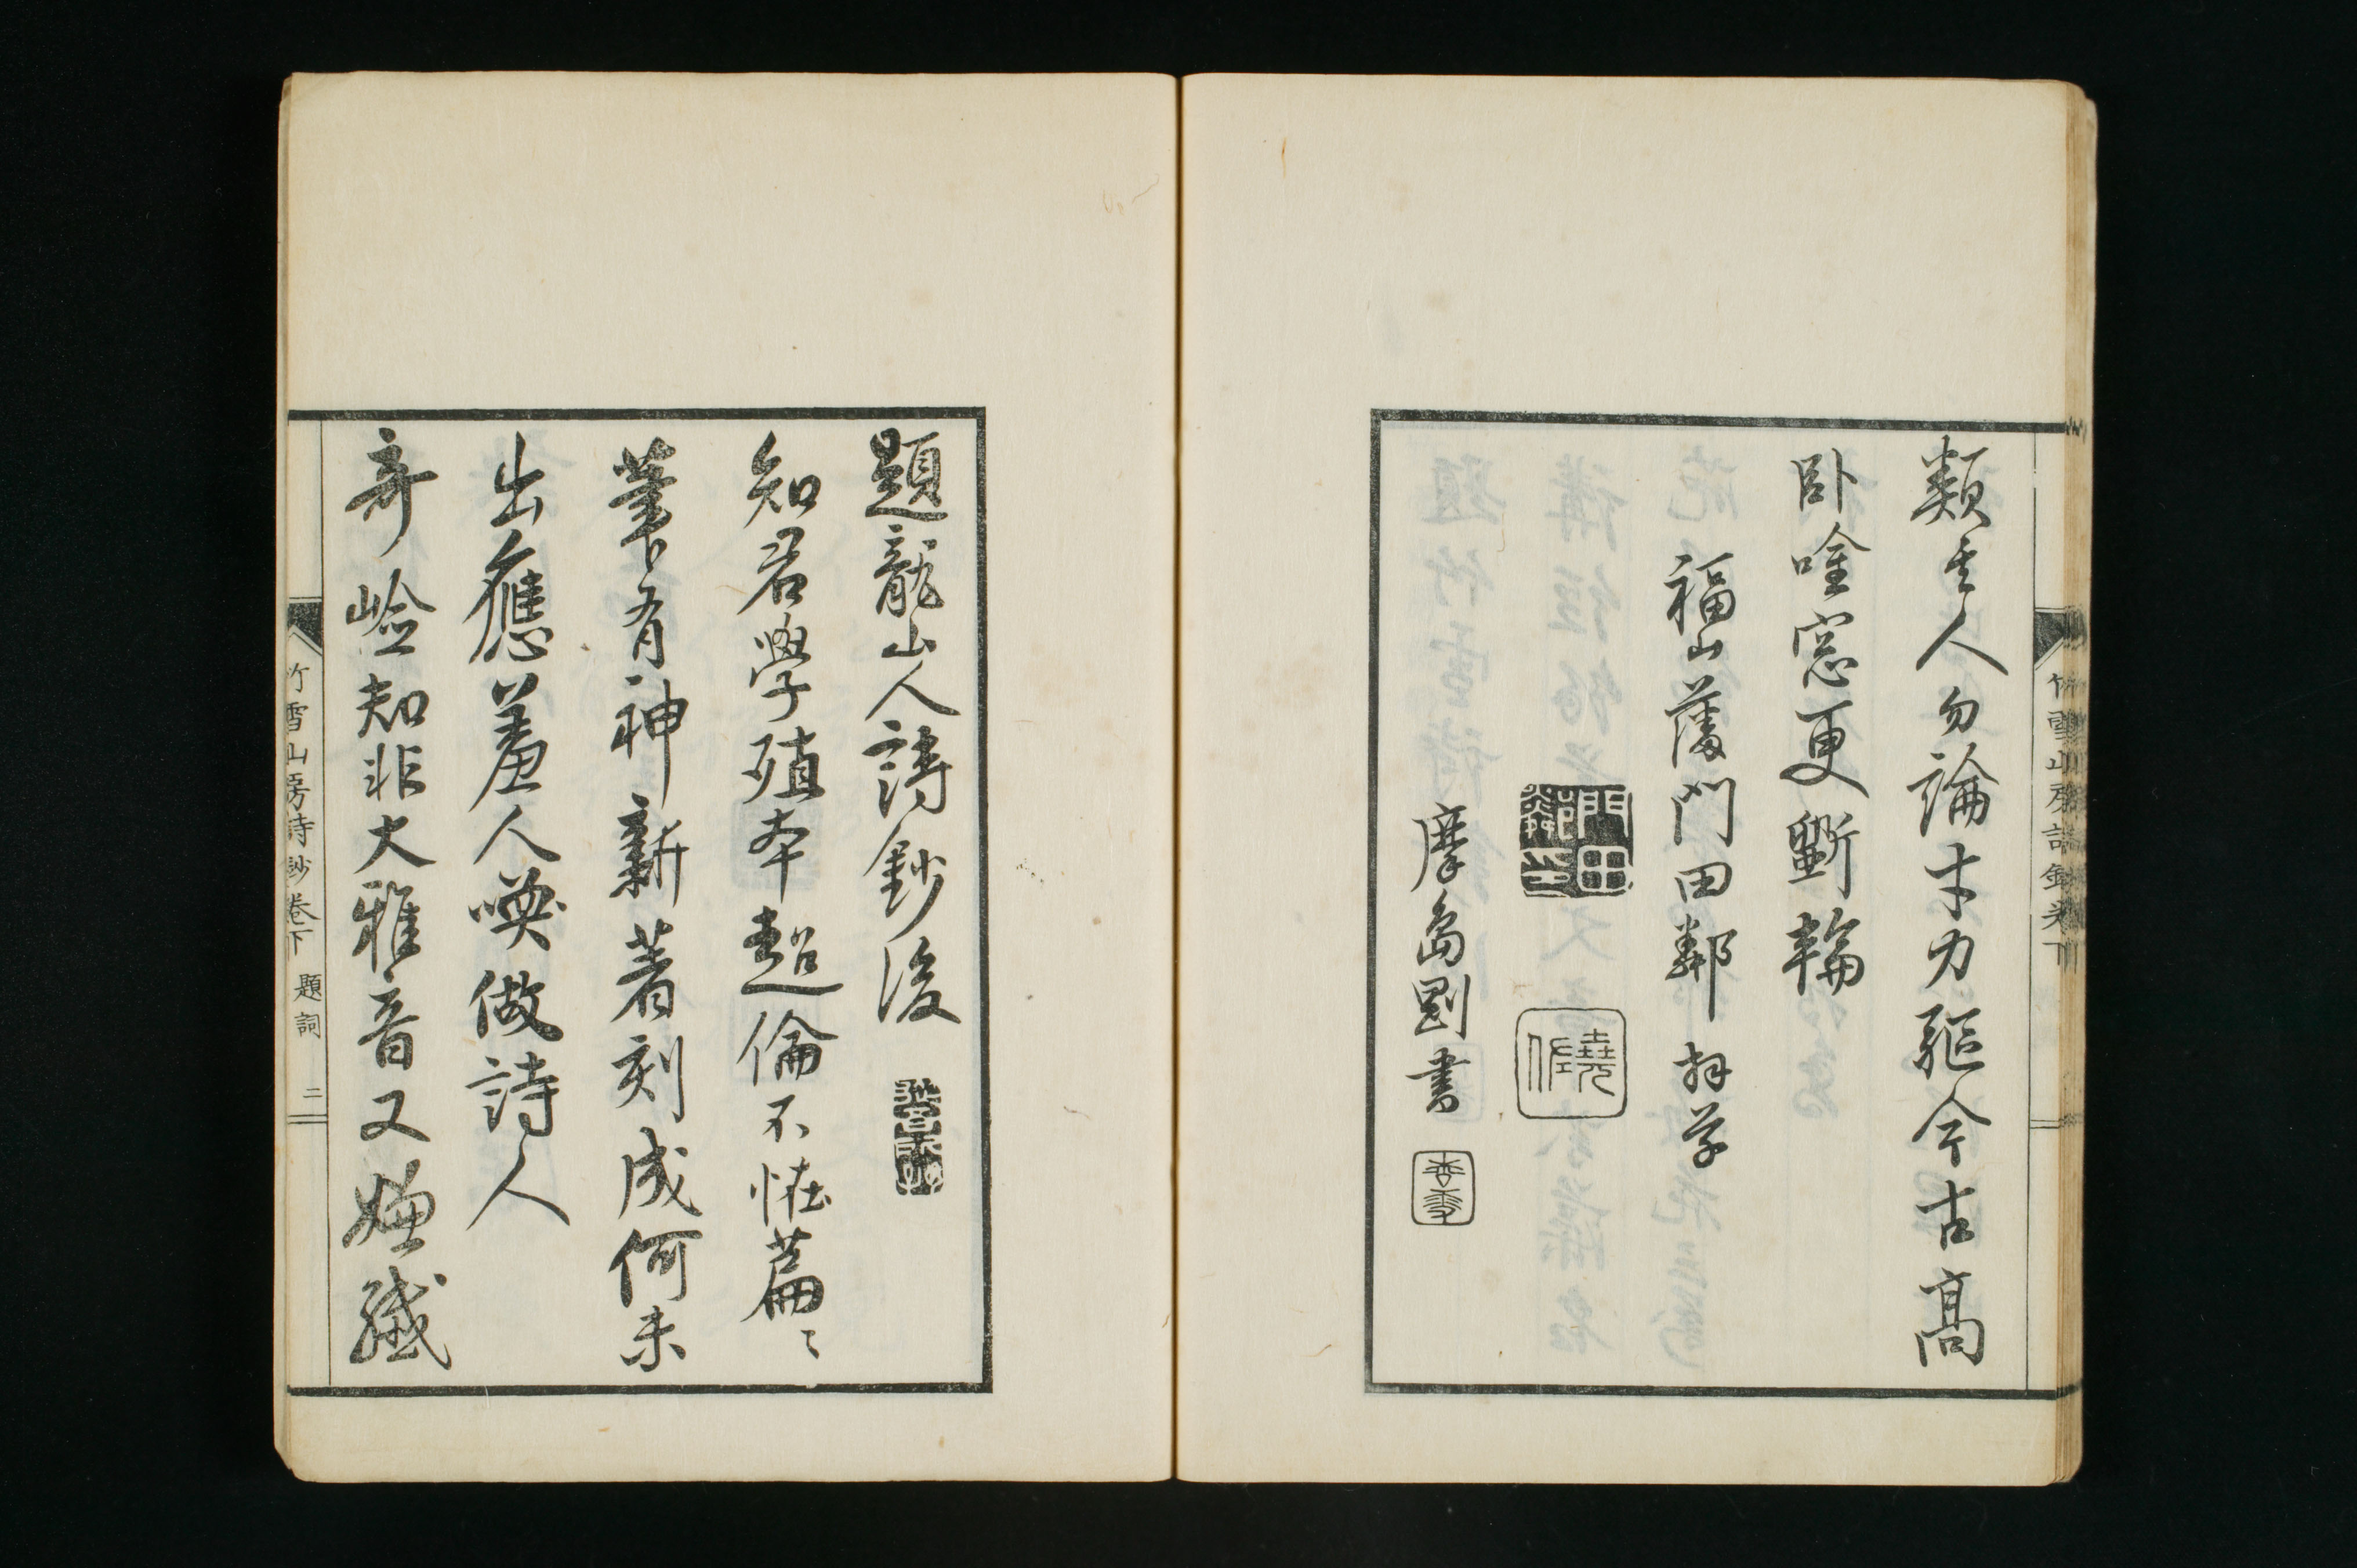 竹雪山房詩鈔卷下
類其人勿論才力驅今古高
臥唫窓更斲輪
福山藩門田鄰拜草
門田鄰之
堯佐
摩島剛書
題龍山人詩鈔後
知君學殖本超倫不怪篇〻
筆有神新著刻成何未
出應羞人喚做詩人
奇崄知非大雅音又嫌纖
竹雪山房詩鈔卷下 題詞 二